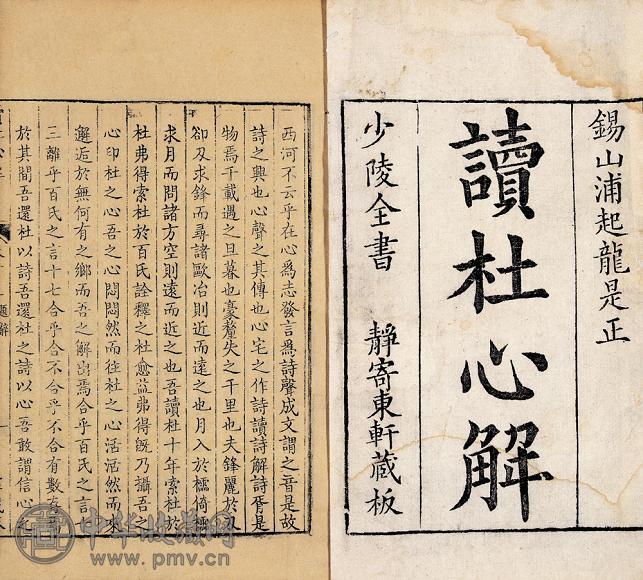 錫山浦起龍是正
讀杜心解
少陵全書 靜寄東軒藏板
西河不云乎在心爲志發言爲詩聲成文謂之音是故
詩之興也心聲之其傳也心宅之作詩讀詩解詩胥是
物焉千載遇之旦暮也豪釐失之千里也夫鋒麗於刃
卻刃求鋒而尋諸歐冶則近而遠之也月入於櫺倚櫺
求月而問諸方空則遠而近之也吾讀杜十年索杜於
杜弗得索杜於百氏詮釋之杜愈益弗得旣乃攝吾之
心印杜之心吾之心悶悶然而往杜之心活活然而來
邂逅於無何有之鄉而吾之解出焉合乎百氏之言十
三離乎百氏之言十七合乎合不合乎不合有數存
於其間吾還杜以詩吾還杜之詩以心吾敢謂信心之
題解
中华收藏网
www.pmv.cn